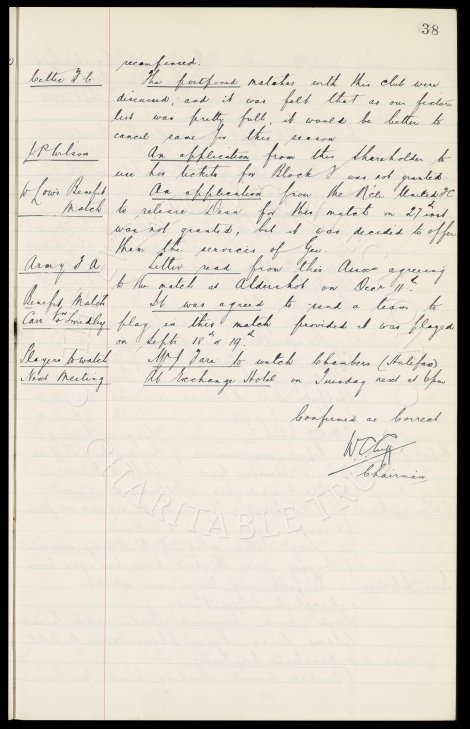 38
reconfirmed.
Celtic F C
The postponed matches with this club were
discussed, and it was felt that as our fixture
list was pretty full, it would be better to
cancel same for this season
J. P. Wilson
An application from this shareholder to
use his tickets for Block J was not granted
W Lows Benefit
Match
An application from the N'cle United FC
to release Dean for this match on 27th inst
was not granted, but it was decided to offer
them the services of Gee
Army F A
Letter read from this Assoc agreeing
to the match at Aldershot on Decr 11th.
Benefit Match
Carr & Smedley
It was agreed to send a team to
play in this match provided it was played
on Septr 18th or 19th.
Players to watch
to watch Chambers (Halifax)
Next Meeting
At Exchange Hotel on Tuesday next at 6pm
Confirmed as Correct
W.C. Cuff
Chairman
CHARITABLE TRUST